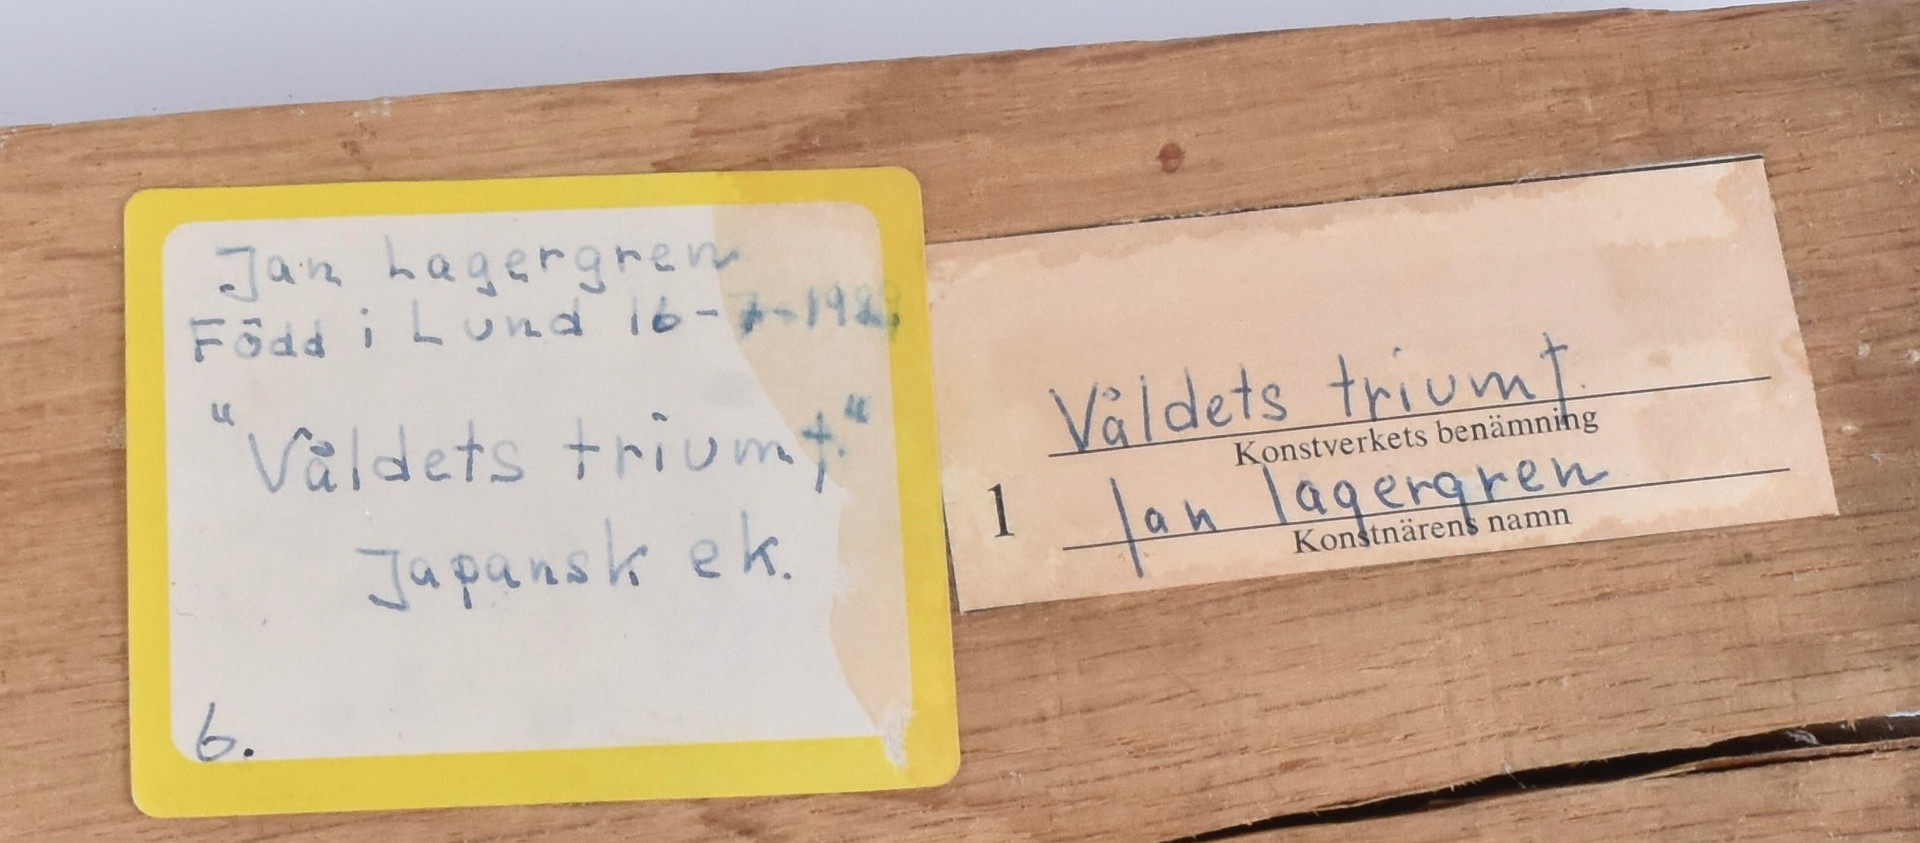 Jan Lagergren
Född i Lund 16-7-
"Våldets triumf."
Japansk ek.
6.
Våldets triumf.
Konstverkets benämning
1 Jan Lagergren
Konstnärens namn